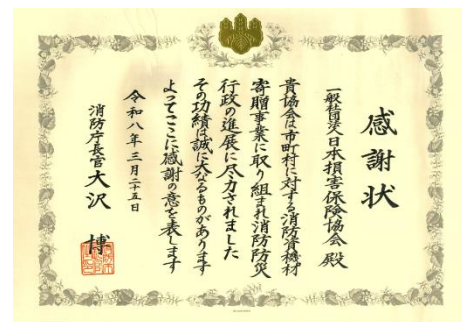 感謝状
一般社団法人日本損害保険協会 殿
貴協会は市町村に対する消防資機材
寄贈事業に取り組まれ消防防災
行政の進展に尽力されました
その功績は誠に大なるものがあります
よってここに感謝の意を表します
令和八年三月二十五日
消防庁長官 大沢 博